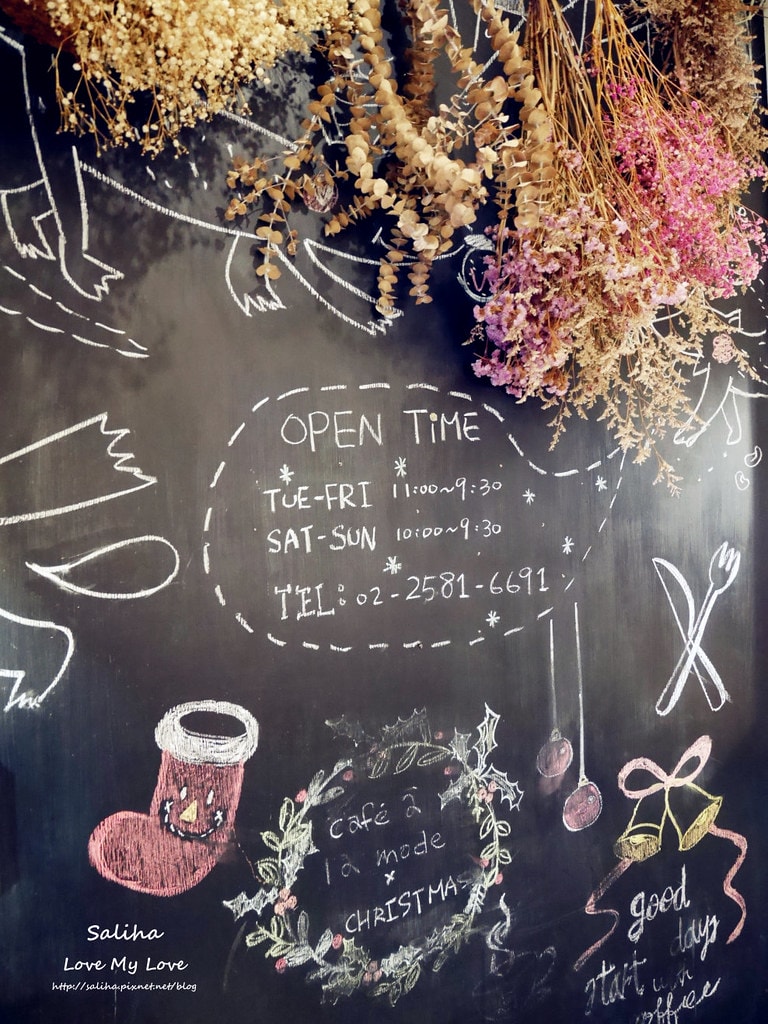 OPEN TiME
TUE-FRI 11:00~9:30
SAT-SUN 10:00~9:30
TEL: 02-2581-6691
café à
la mode
x
CHRISTMAS
good
days
start with
coffee
Saliha
Love My Love
http://saliha.pixnet.net/blog